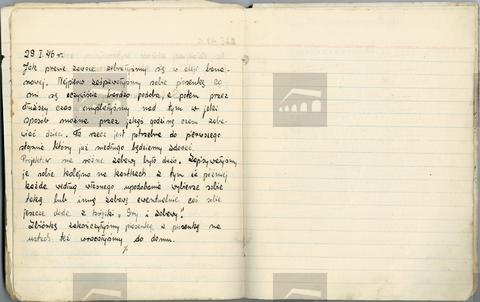 29 I. 46 r.
Jak prawie zawsze zebrałyśmy się w alei bana-
nowej. Najpierw zaśpiewałyśmy sobie piosenkę co
mi się oczywiście bardzo podoba, a potem przez
dłuższy czas myślałyśmy nad tym w jaki
sposób można przez jakąś godzinę czasu zaba-
wiać dzieci. Ta rzecz jest potrzebna do pierwszego
stopnia który już niedługo będziemy zdawać.
Projektów na różne zabawy było dużo. Zapisywałyśmy
je sobie kolejno na kartkach z tym iż później
każda według własnego upodobania wybierze sobie
taką lub inną zabawę ewentualnie coś sobie
jeszcze doda z książki „Gry i zabawy".
Zbiórkę zakończyłyśmy piosenką, z piosenką na
ustach też wrociłyśmy do domu.